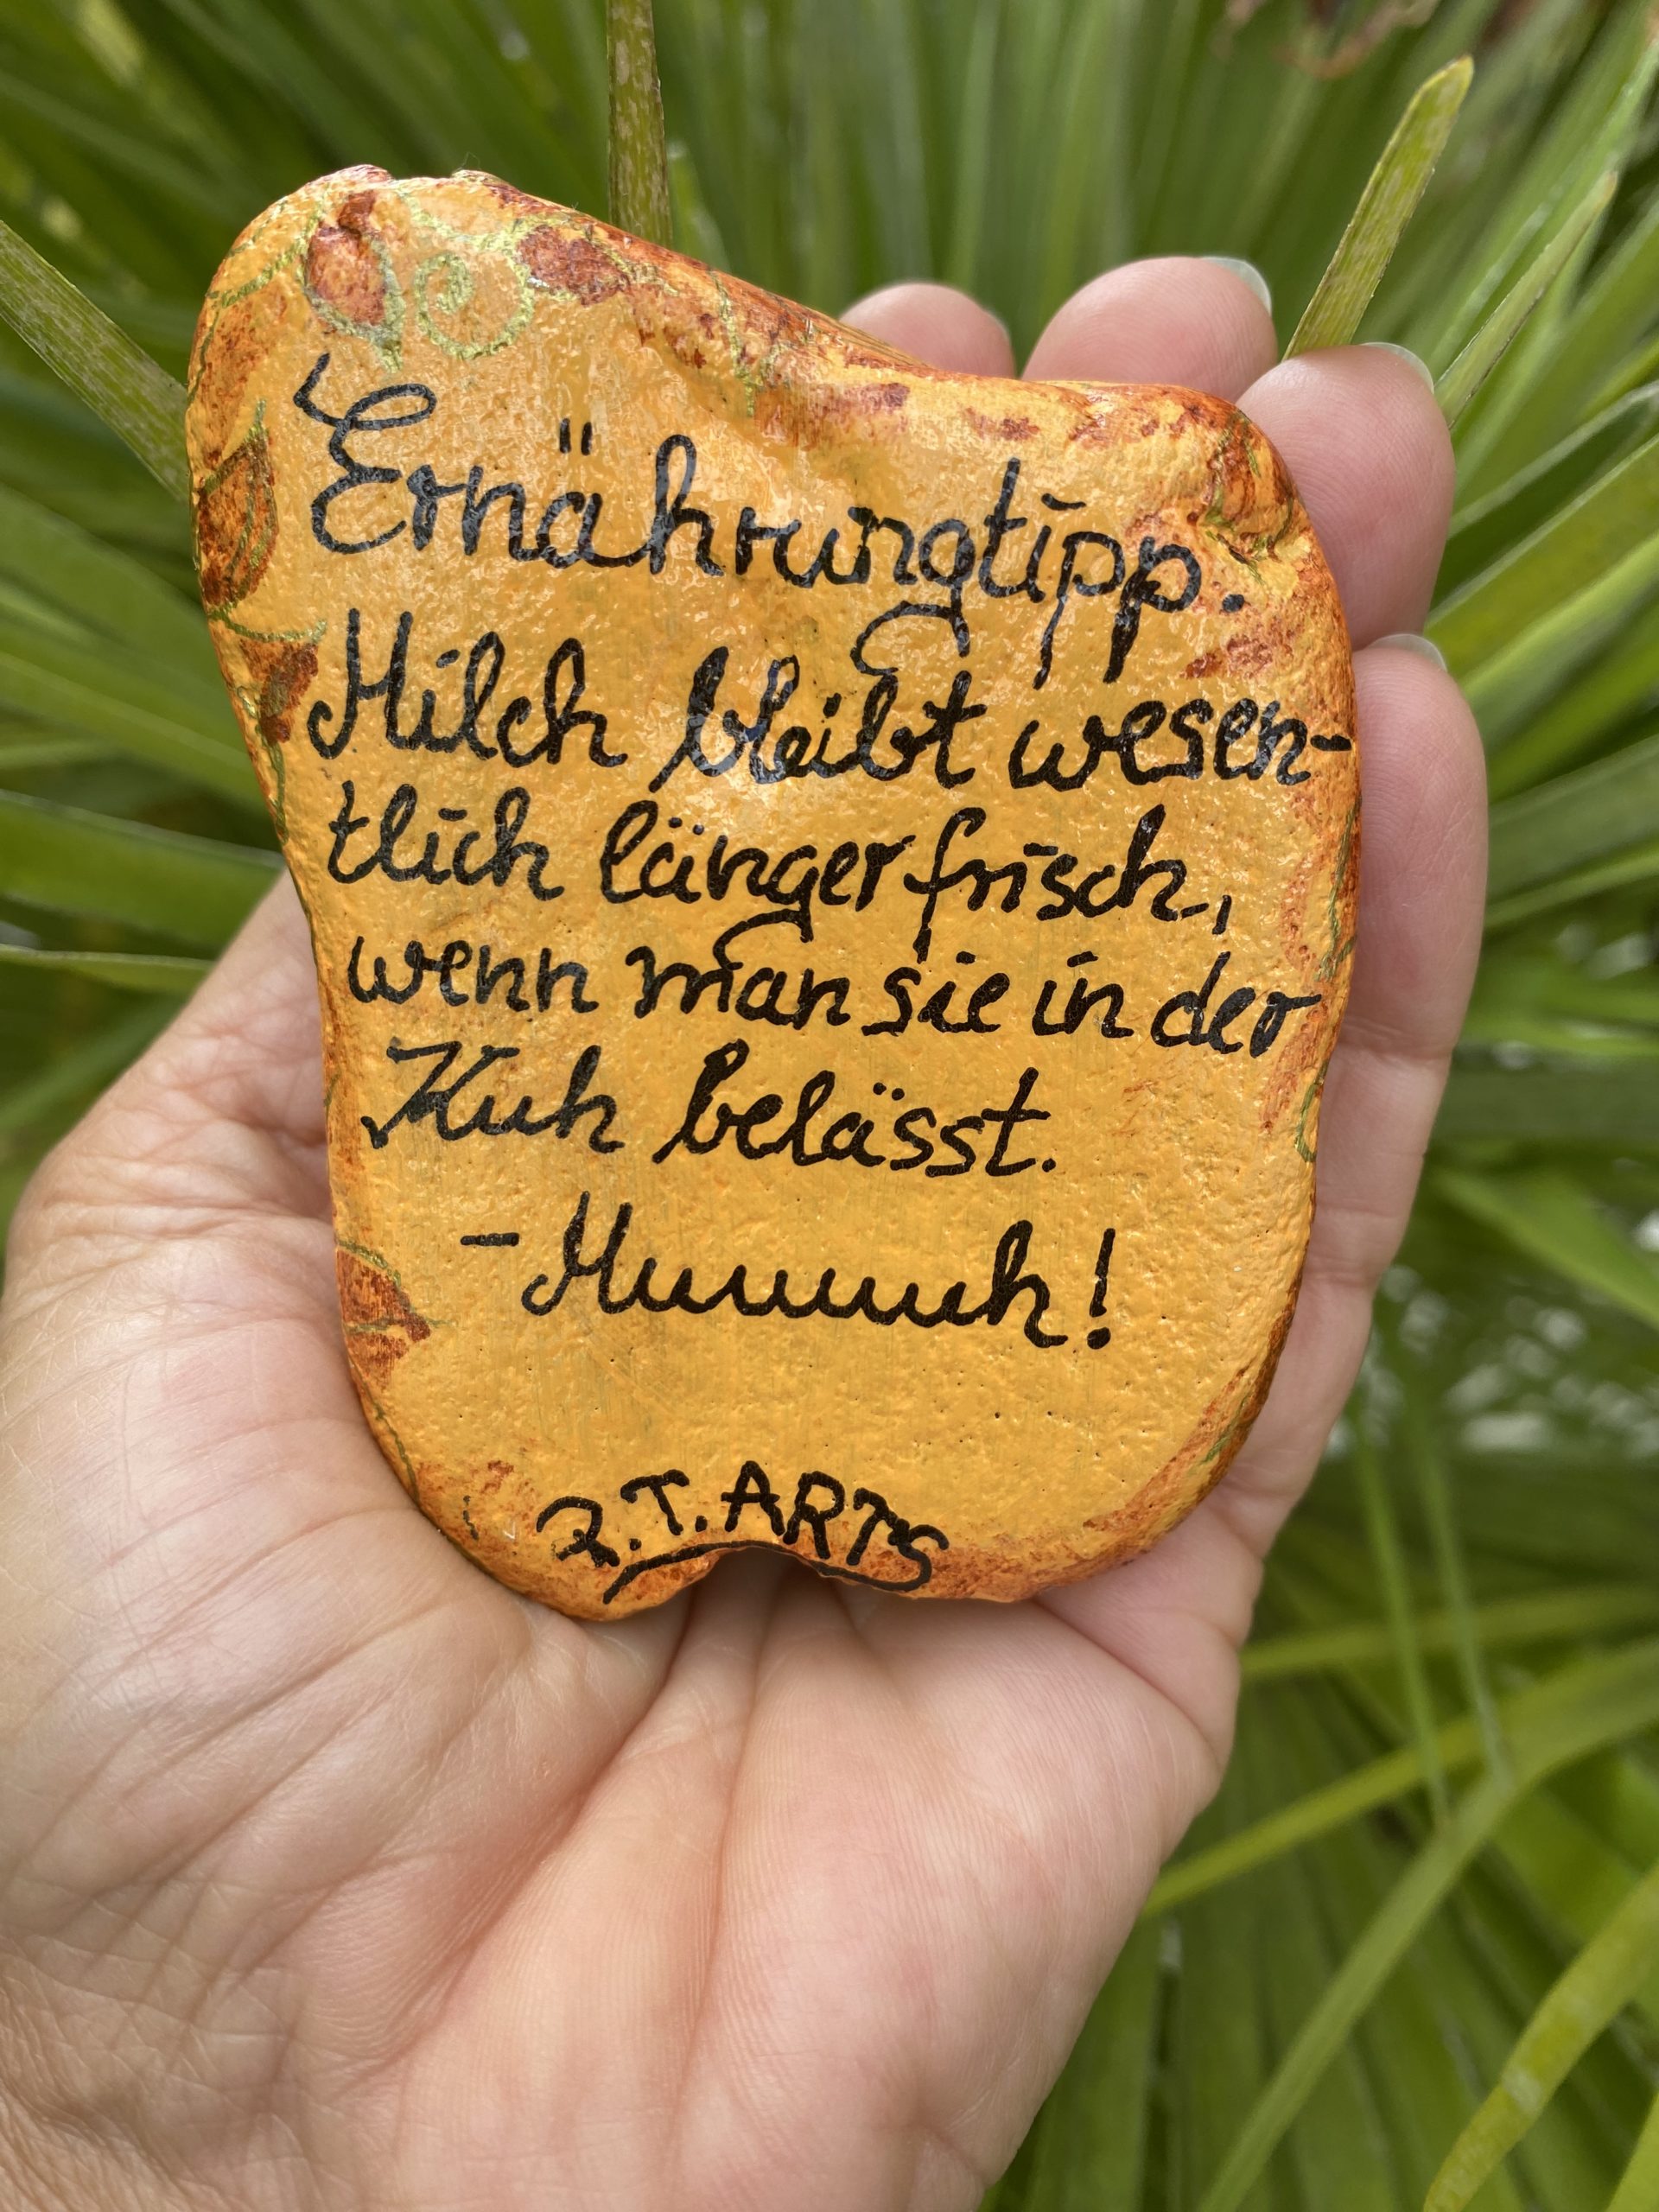 Ernährungtipp.
Milch bleibt wesen-
tlich länger frisch,
wenn man sie in der
Kuh belässt.
- Muuuuuh!
R.T. ARTS